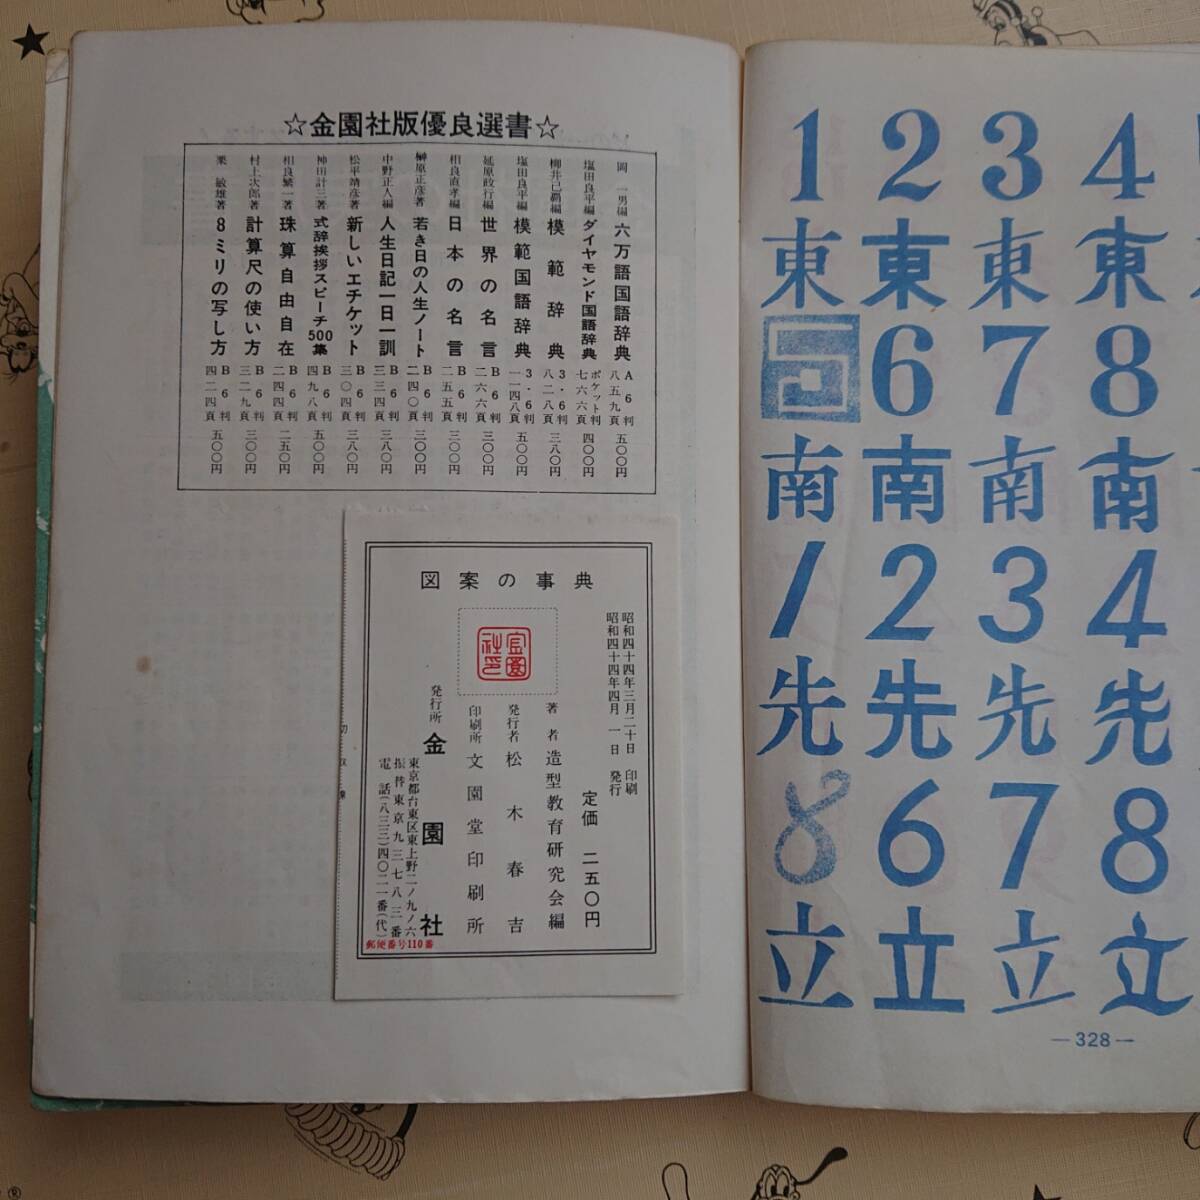 ☆金園社版優良選書☆
岡一男編 六万語国語辞典 A6判 八五九頁 五〇〇円
塩田良平編 ダイヤモンド国語辞典 ポケット判 七六六頁 四〇〇円
柳井己覇編 模範辞典 3・6判 八二八頁 三八〇円
塩田良平編 模範国語辞典 3・6判 一一四八頁 五〇〇円
延原政行編 世界の名言 B6判 二六六頁 三〇〇円
相良直孝編 日本の名言 B6判 二五五頁 三〇〇円
榊原正彦著 若き日の人生ノート B6判 二四〇頁 三〇〇円
中野正人編 人生日記一日一訓 B6判 三三四頁 三八〇円
松平靖彦著 新しいエチケット B6判 三〇四頁 三八〇円
神田計三著 式辞挨拶スピーチ500集 B6判 四九八頁 五〇〇円
相良繁一著 珠算自由自在 B6判 二四四頁 二五〇円
村上次郎著 計算尺の使い方 B6判 三二九頁 三〇〇円
栗敏雄著 8ミリの写し方 B6判 四二四頁 五〇〇円
図案の事典
昭和四十四年三月二十日 印刷
昭和四十四年四月一日 発行
定価 二五〇円
著者 造型教育研究会編
発行者 松木春吉
印刷所 文園堂印刷所
発行所 金園社
東京都台東区東上野二ノ九ノ六
振替東京九三七八三番
電話(八三三)四〇二一番(代)
郵便番号110番
金園社印
切取線
1 2 3 4
東 東 東 東
5 6 7 8
南 南 南 南
1 2 3 4
先 先 先 先
8 6 7 8
立 立 立 立
—328—